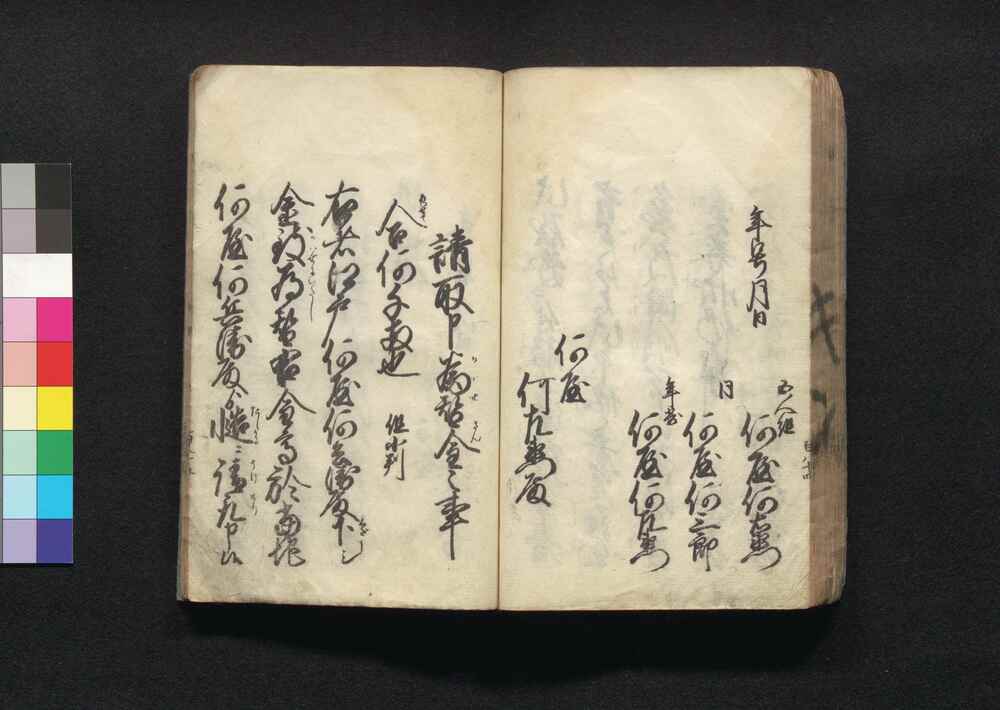 年号月日
五人組
何屋何右衛門
同
何屋何三郎
年寄
何屋何左衛門
何屋
何左衛門殿
請取申為替金之事
合何千両也 但小判
右者江戸何屋何兵衛殿下し
金我等為替金高於当地
何屋何兵衛殿〻慥ニ請取申候